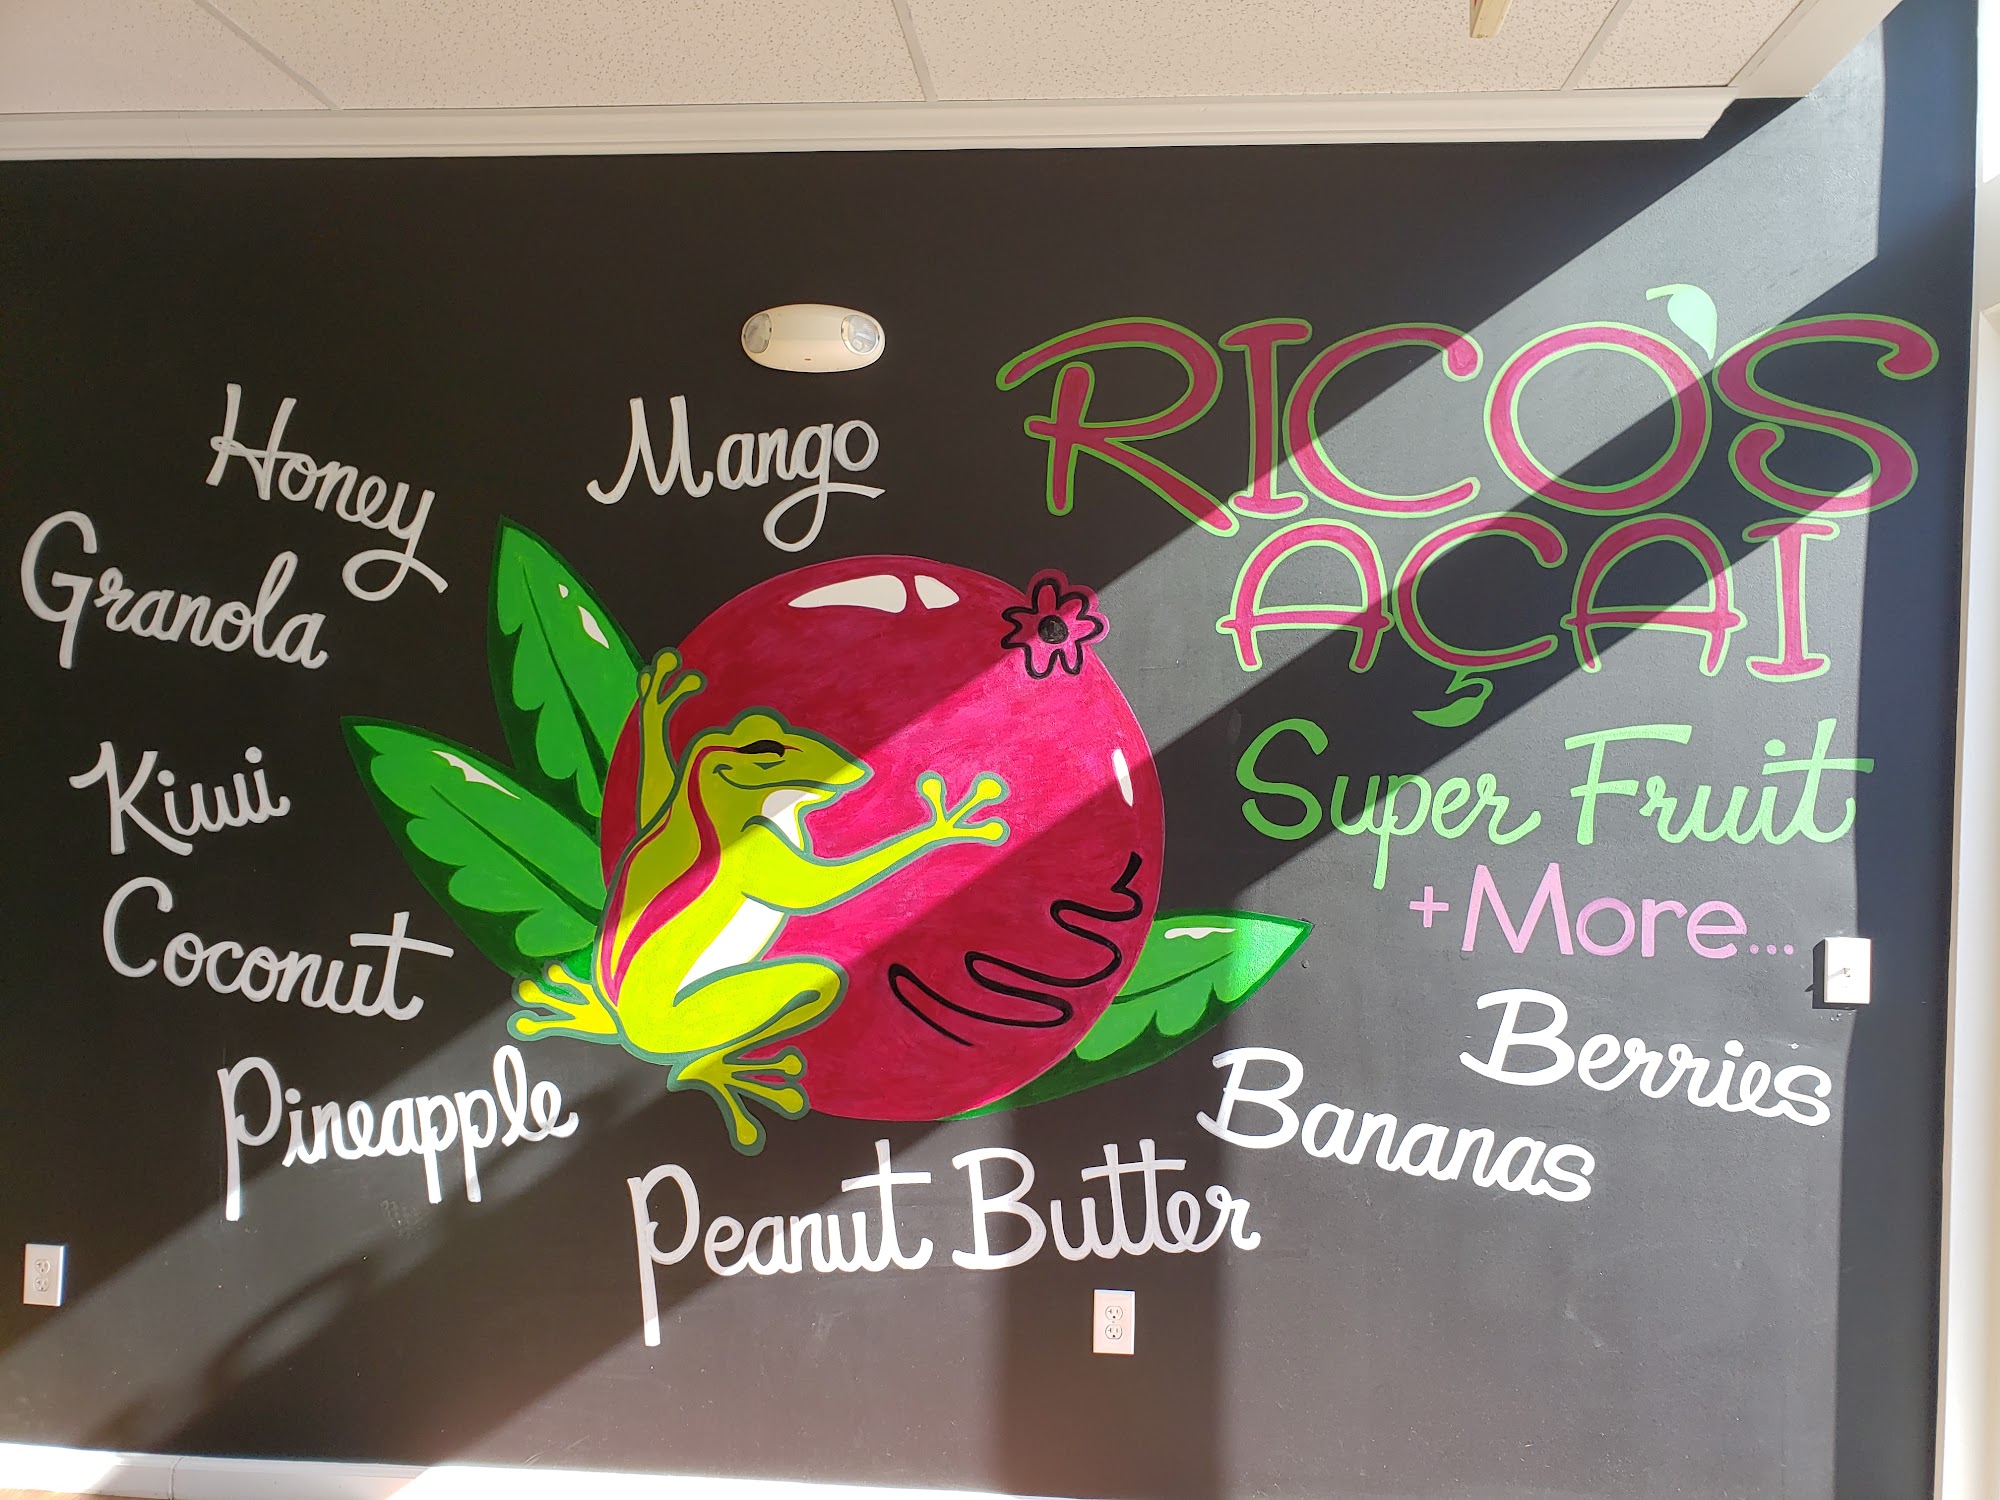 Honey
Mango
RICO'S
AÇAI
Granola
Super Fruit
+More...
Kiwi
Coconut
Berries
Pineapple
Bananas
Peanut Butter